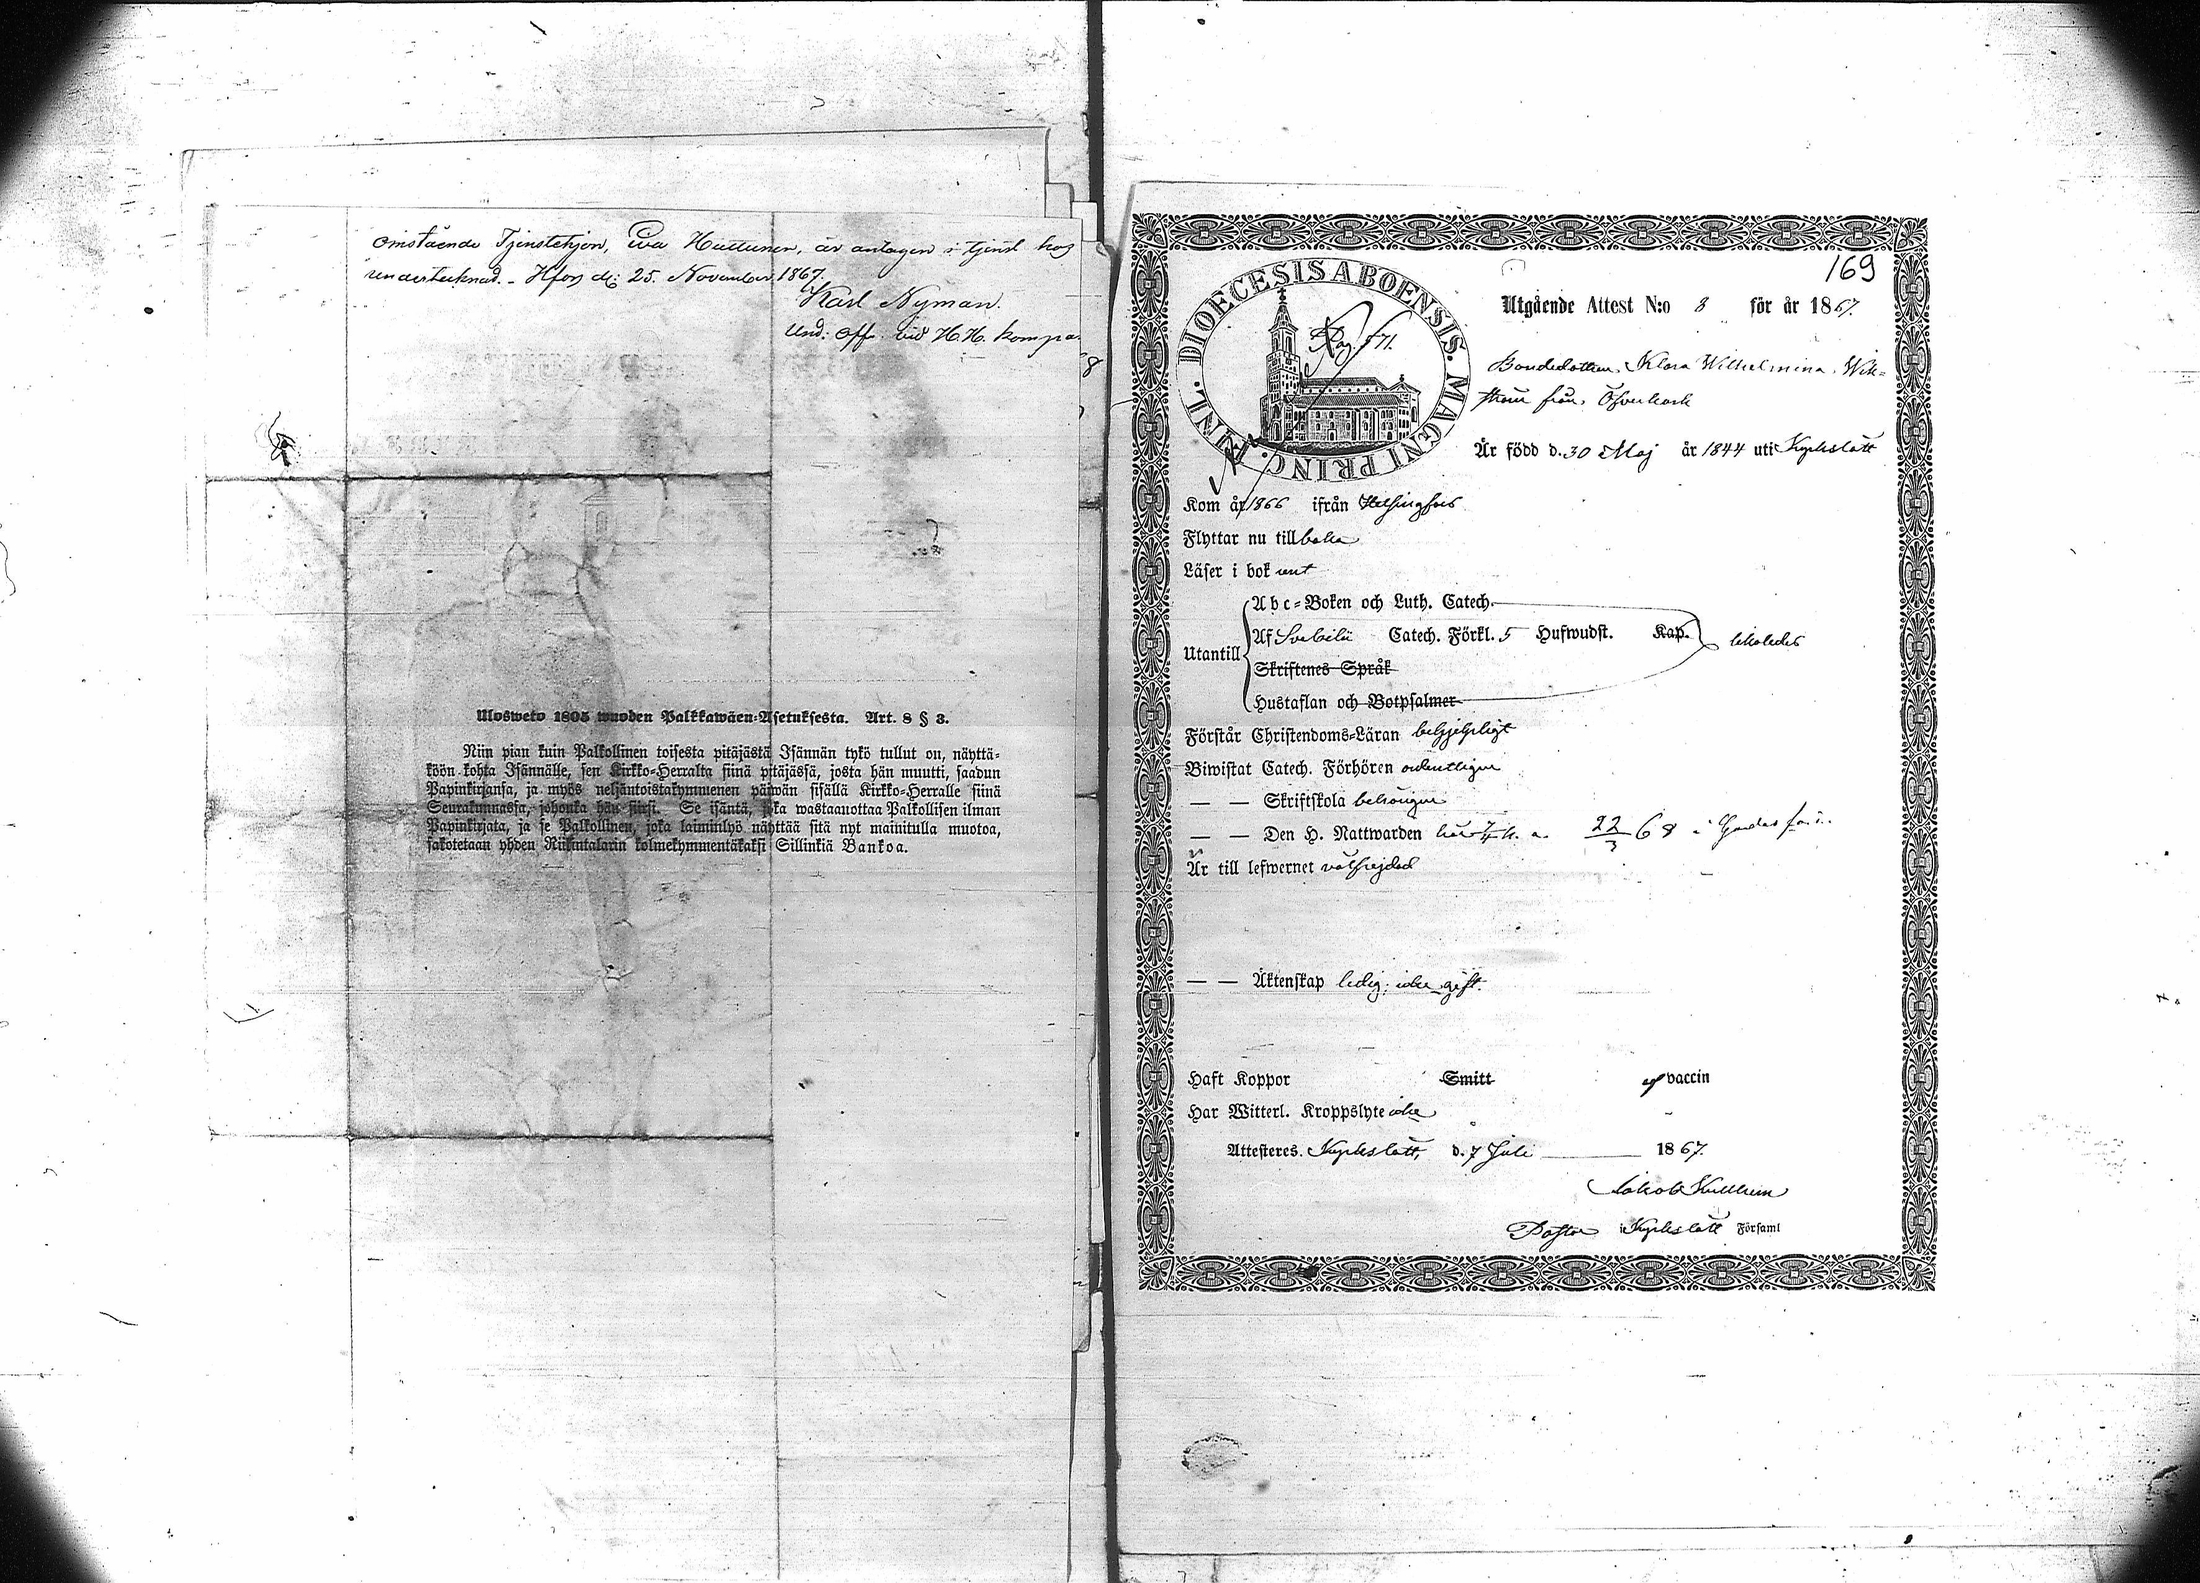 Omstående Tjenstehjon, Eva Huttunen, är antagen i tjenst hos
undertecknad. - Hfors d: 25. November 1867.
Karl Nyman.
Und: Off. vid H.H. kompa
8
Ulosweto 1805 wuoden Palkkawäen-Asetuksesta. Art. 8 § 3.
Niin pian kuin Palkollinen toisesta pitäjästä Isännän tykö tullut on, näyttä-
köön kohta Isännälle, sen Kirkko-Herralta siinä pitäjässä, josta hän muutti, saadun
Papinkirjansa, ja myös neljäntoistakymmenen päiwän sisällä Kirkko-Herralle siinä
Seurakunnassa, johonka hän siirsi. Se isäntä, joka wastaanottaa Palkollisen ilman
Papinkirjata, ja se Palkollinen, joka laiminlyö näyttää sitä nyt mainitulla muotoa,
sakotetaan yhden Riikintalarin kolmekymmentäkaksi Sillinkiä Bankoa.
169
DIOECESIS ABOENSIS. MAGNI PRINC. FINL.
Pag. 571.
Utgående Attest N:o 3 för år 1867.
Bondedottern Klara Wilhelmina Wik-
ström från Öfverkurk
Är född d. 30 Maj år 1844 uti Kyrkslätt
Kom år 1866 ifrån Helsingfors
Flyttar nu tillbaka
Läser i bok rent
Abc-Boken och Luth. Catech.
Utantill Af Svebilii Catech. Förkl. 5 Hufwudst. Kap. likaledes
Skriftenes Språk
Hustaflan och Botpsalmer
Förstår Christendoms-Läran behjelpligt
Biwistat Catech. Förhören ordentligen
— — Skriftskola behörigen
— — Den H. Nattwarden 22/3 68 i
Är till lefwernet välfrejdad
— — Äktenskap ledig: icke gift.
Haft Koppor Smitt vaccin
Har Witterl. Kroppslyte icke
Attesteres. Kyrkslätt, d. 7 Juli 1867.
Jakob Kullhem
Pastor i Kyrkslätt Församl